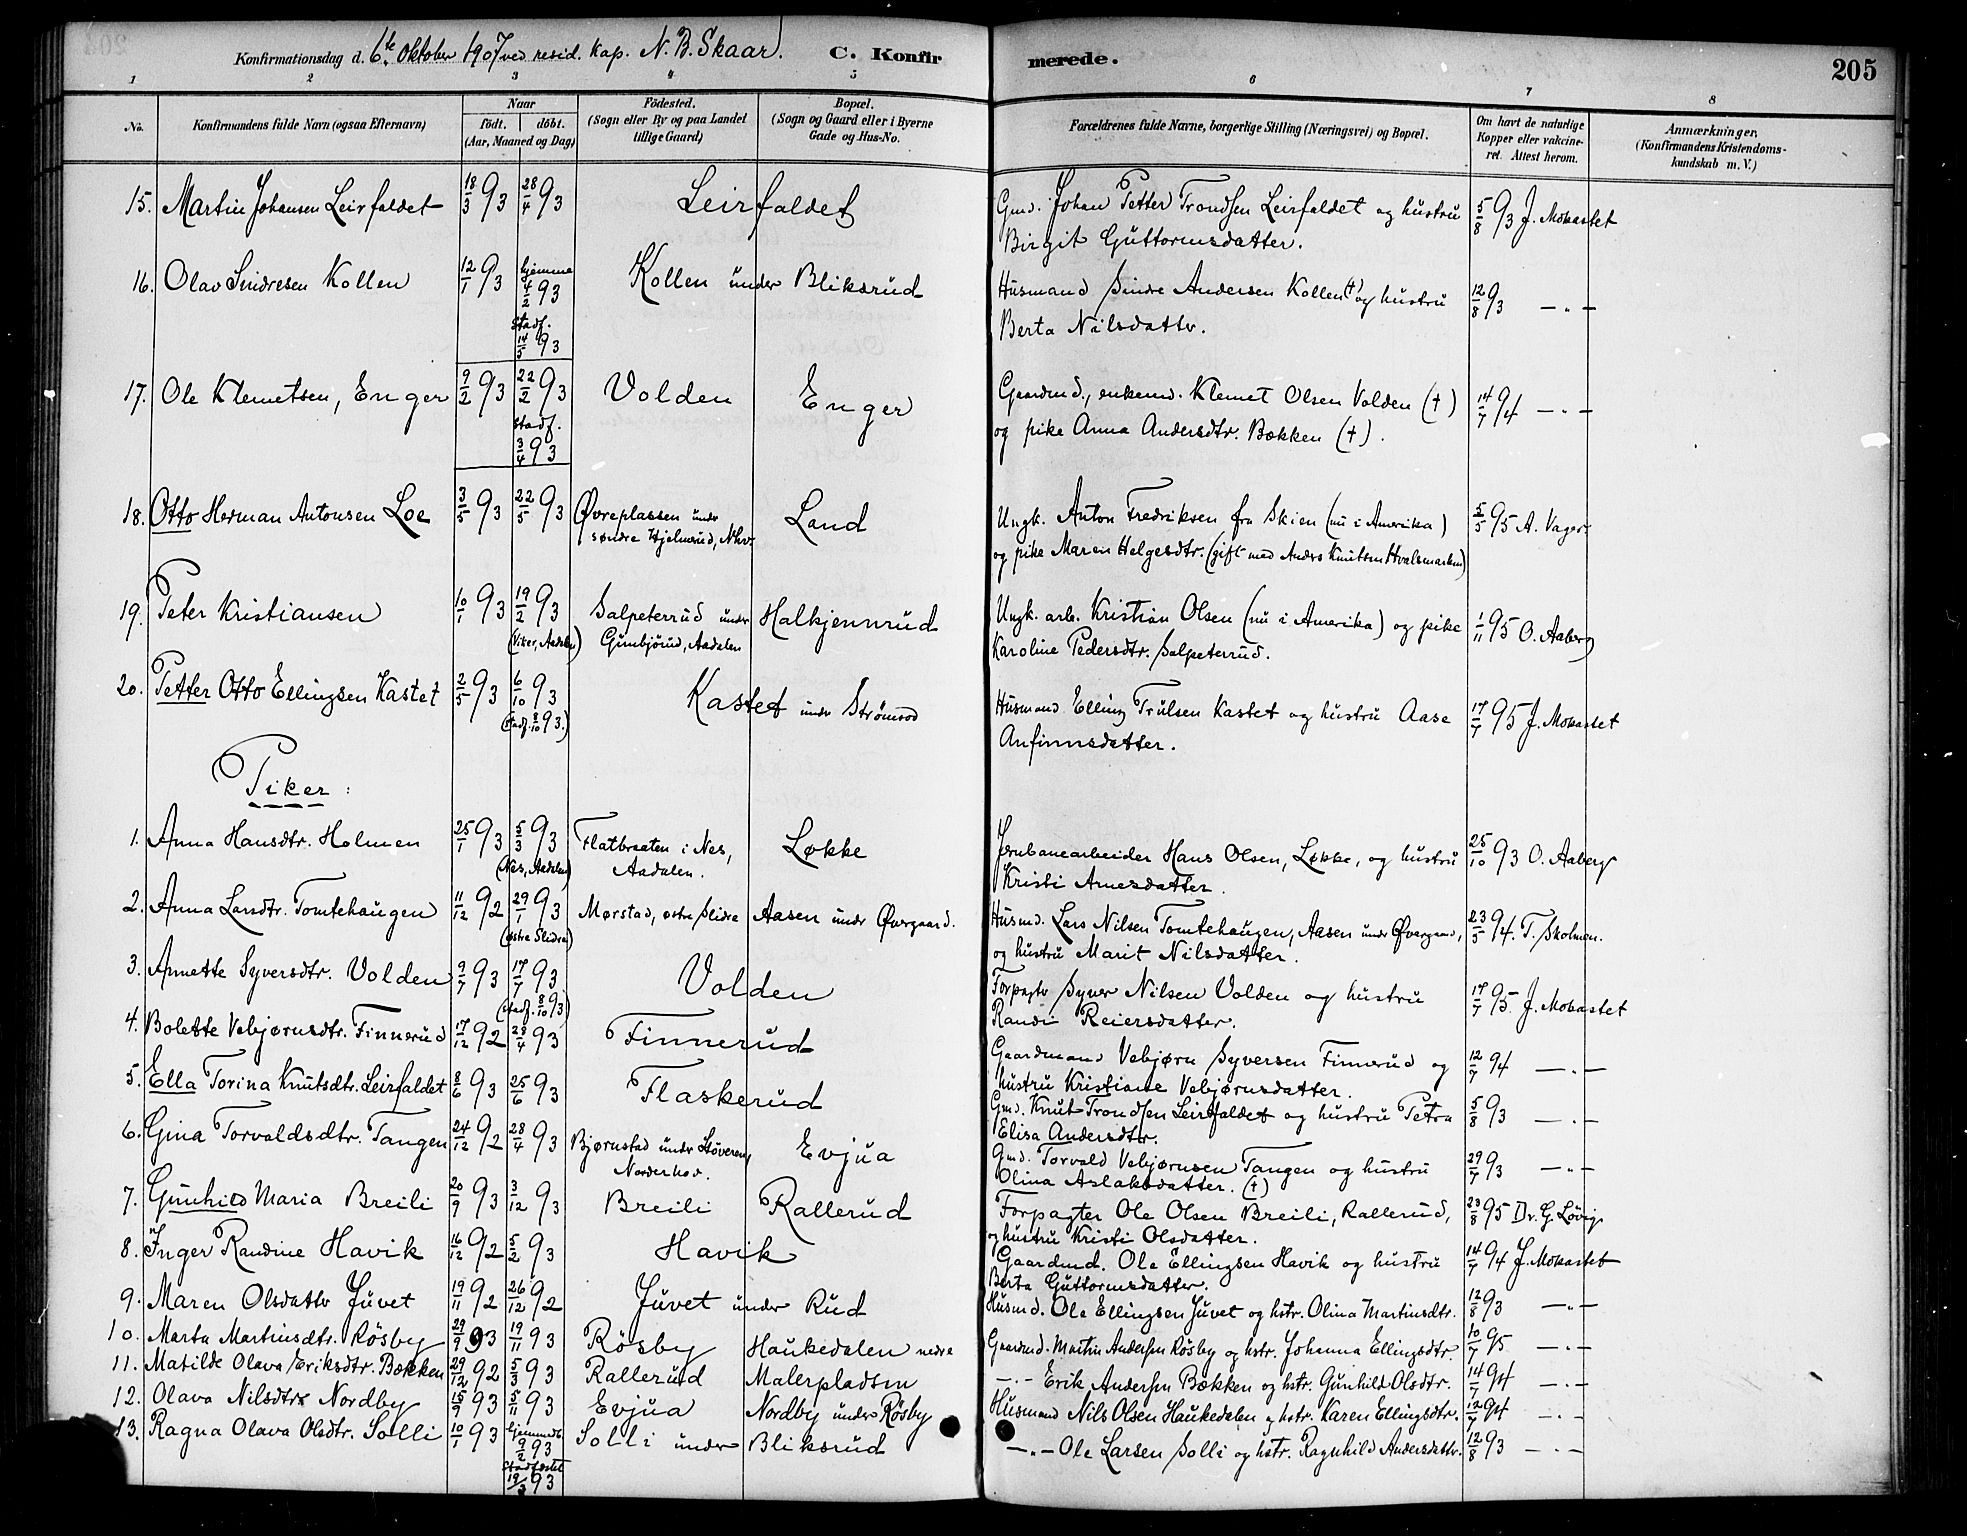 Konfirmationsdag d. 6te Oktober 1907 ved resid. kap. N. B. Skaar. C. Konfirmerede. 205
1 2 3 4 5 6 7 8
No. Konfirmandens fulde Navn (ogsaa Efternavn) Naar født. døbt. (Aar, Maaned og Dag) Fødested. (Sogn eller By og paa Landet tillige Gaard) Bopæl. (Sogn og Gaard eller i Byerne Gade og Hus-No. Forældrenes fulde Navne, borgerlige Stilling (Næringsvei) og Bopæl. Om havt de naturlige Kopper eller vakcineret. Attest herom. Anmærkninger. (Konfirmandens Kristendomskundskab m. V.)
15. Martin Johansen Leirfaldet 18/3 93 28/4 93 Leirfaldet Gmd. Johan Petter Trondsen Leirfaldet og hustru 5/8 93 J. Mokastet
Birgit Guttormsdatter.
16. Olav Sindresen Kollen 12/1 93 hjemme 4/2 93 Kollen under Bliksrud Husmand Sindre Andersen Kollen (†) og hustru 12/8 93 — " —
stadf. 14/5 93 Berta Nilsdatter.
17. Ole Klemetsen, Enger 9/2 93 22/2 93 Volden Enger Gaardmd., enkemd. Klemet Olsen Volden (†) 14/7 94 — " —
stadf. 3/4 93 og pike Anna Andersdtr. Bækken (†).
18. Otto Herman Antonsen Loe 3/5 93 22/5 93 Øvreplassen under Land Ungk. Anton Fredriksen fra Skien (nu i Amerika) 5/5 95 A. Vager.
søndre Hjelmerud, Nhv. og pike Maren Helgesdtr. (gift med Anders Knutsen Hvalsmarken)
19. Peter Kristiansen 10/1 93 19/2 93 Salpeterrud under Halkjennrud Ungk. arb. Kristian Olsen (nu i Amerika) og pike 1/11 95 O. Aaberg
(Viker, Aadalen) Gunbjørud, Aadalen Karoline Pedersdtr. Salpeterrud.
20. Petter Otto Ellingsen Kastet 2/5 93 6/10 93 Kastet under Strømsod Husmand Elling Trulsen Kastet og hustru Aase 17/7 95 J. Mokastet
(stadf. 8/10 93.) Anfinnsdatter.
Piker:
1. Anna Hansdtr. Holmen 25/1 93 5/3 93 Flatbraaten i Nes, Løkke Jernbanearbeider Hans Olsen, Løkke, og hustru 25/10 93 O. Aaberg
(Nes, Aadalen) Aadalen. Kristi Arnesdatter.
2. Anna Larsdtr. Tomtehaugen 11/12 92 29/1 93 Mørstad, østre Slidre Aasen under Øvergaard. Husmd. Lars Nilsen Tomtehaugen, Aasen under Øvergaard, 23/5 94. T. Skolmen.
(østre Slidre) og hustru Marit Nilsdatter.
3. Annette Syversdtr. Volden 9/7 93 17/7 93 Volden Forpagter Syver Nilsen Volden og hustru 17/7 95. J. Mokastet
(stadf. 8/10 93) Randi Reiersdatter.
4. Bolette Vebjørnsdtr. Finnerud 17/12 92 23/4 93 Finnerud Gaardmand Vebjørn Syversen Finnerud og 12/7 94 — " —
hustru Kristiane Vebjørnsdatter.
5. Ella Torina Knutsdtr. Leirfaldet 8/6 93 25/6 93 Flaskerud Gmd. Knut Trondsen Leirfaldet og hustru Petra 5/8 93 — " —
Elisa Andersdtr.
6. Gina Torvaldsdtr. Tangen 24/12 92 28/4 93 Bjørnstad under Støveren, Evjua Gmd. Torvald Vebjørnsen Tangen og hustru 29/7 93 — " —
Norderhov. Olina Aslaksdatter. (†)
7. Gunhild Maria Breili 20/9 93 3/12 93 Breili Rallerud Forpagter Ole Olsen Breili, Rallerud, 23/8 95 Dr. G. Løvig
og hustru Kristi Olsdatter.
8. Inger Randine Havik 16/12 92 5/2 93 Havik Gaardmd. Ole Ellingsen Havik og hustru 14/7 94 J. Mokastet
Berta Guttormsdatter.
9. Maren Olsdatter Juvet 19/11 92 26/12 92 Juvet under Rud Husmd. Ole Ellingsen Juvet og hstr. Olina Martinsdtr. 12/8 93 — " —
10. Marta Martinsdtr. Røsby 29/9 93 19/11 93 Røsby Haukedalen nedre Gaardmd. Martin Andersen Røsby og hstr. Johanna Ellingsdtr. 10/7 95 — " —
11. Matilde Olava Eriksdtr. Bækken 29/12 92 5/3 93 Rallerud Malerpladsen — " — Erik Andersen Bækken og hstr. Gunhild Olsdtr. 14/7 94 — " —
12. Olava Nilsdtr. Nordby 15/9 93 5/11 93 Evjua Nordby under Røsby Husmand Nils Olsen Haukedalen og hstr. Karen Ellingsdtr. 12/7 94 — " —
13. Ragna Olava Olsdtr. Solli 10/1 93 hjemmedt. 9/2 93 Solli under Bliksrud — " — Ole Larsen Solli og hstr. Ragnhild Andersdatter. 12/8 93 — " —
Stadfæstet 19/3 93